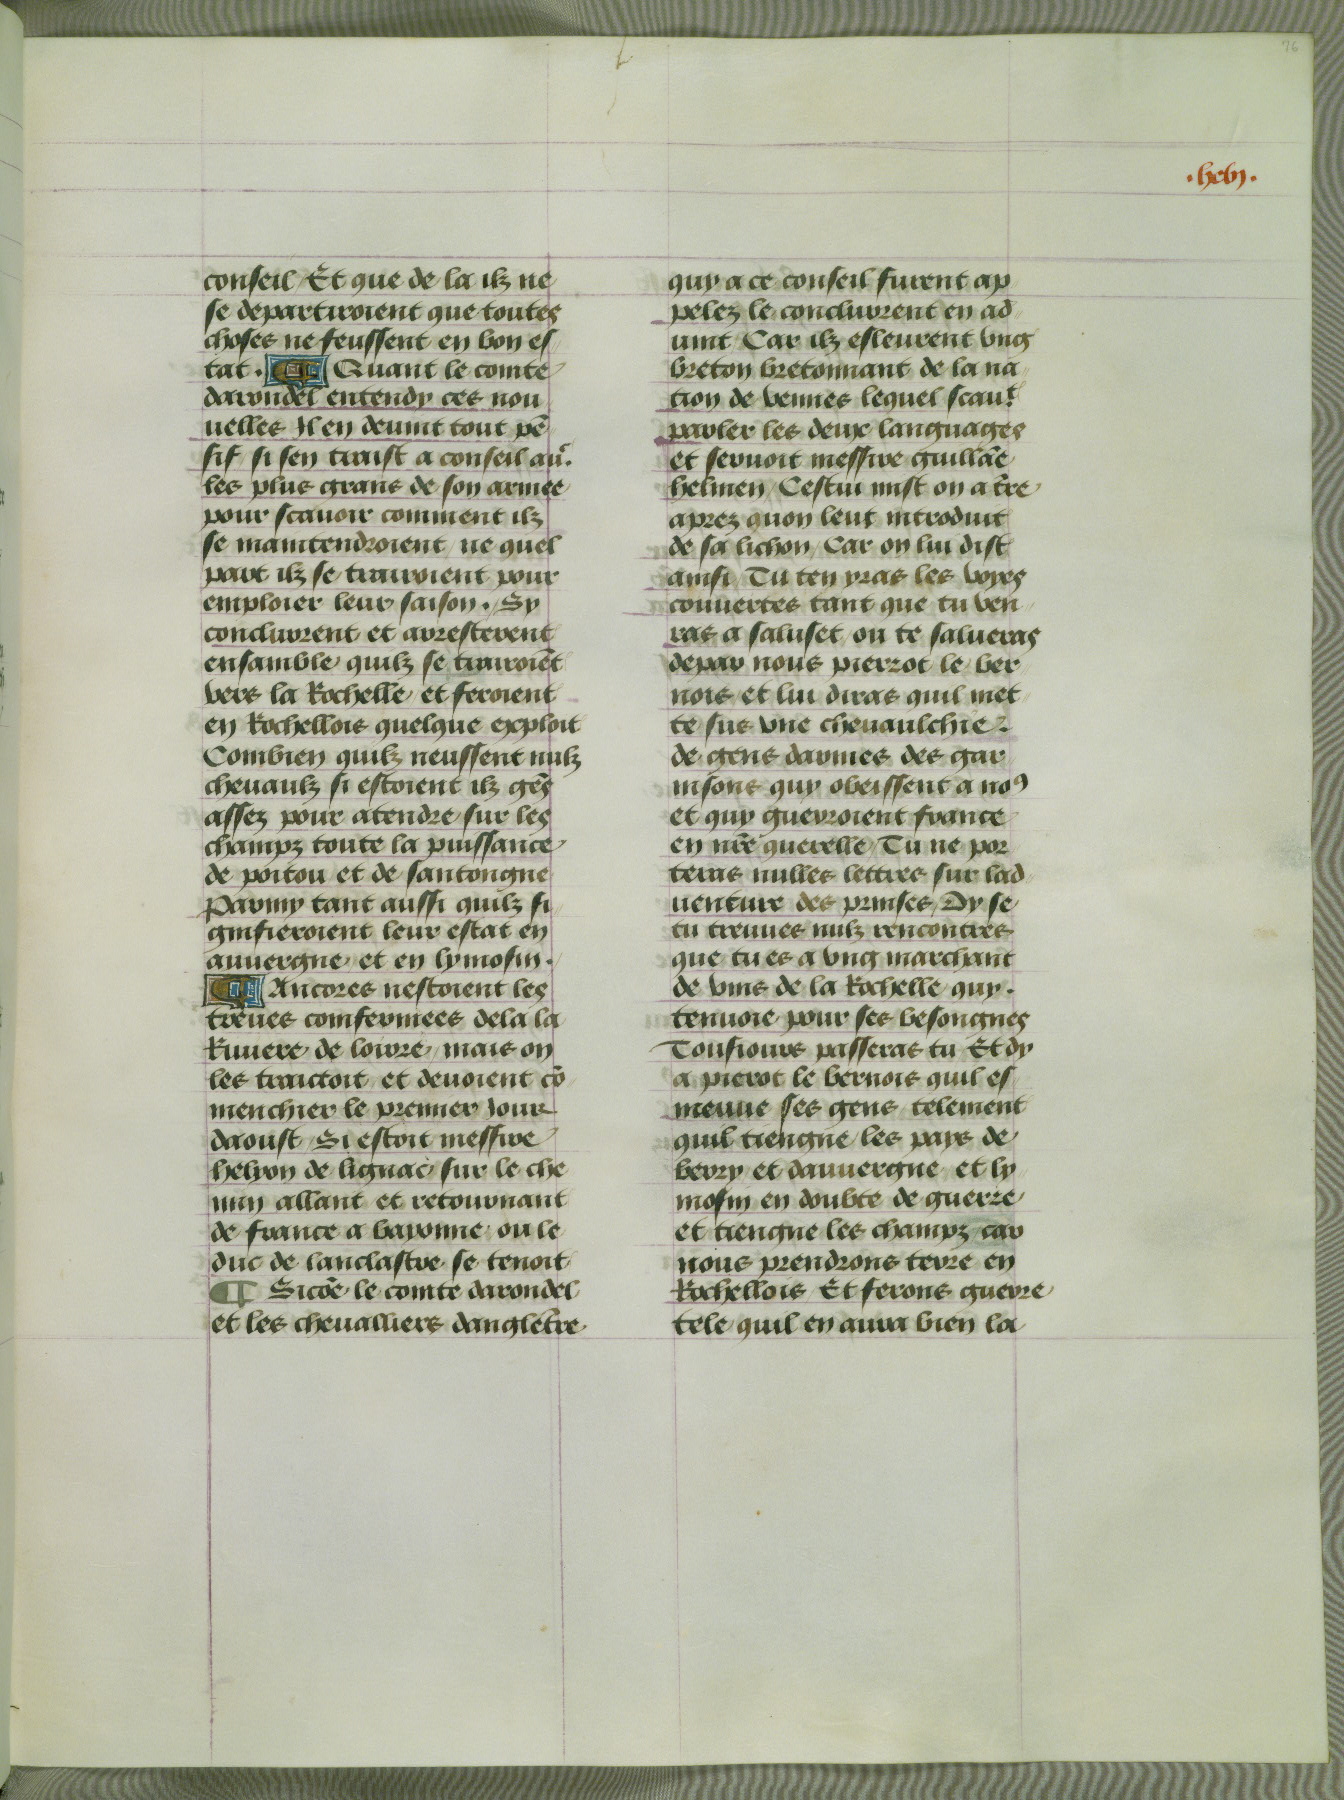 76
.lxxvj.
conseil / Et que de la ilz ne
se departiroient que toutes
choses ne feussent en bon es
tat . Quant le comte
darondel entendy ces nou
uelles Il en deuint tout pē
sif si sen traist a conseil au᷑.
les plus grans de son armee
pour scauoir comment ilz
se maintendroient / ne quel
part ilz se trairoient pour
emploier leur saison . Sy
conclurrent et arresterent
ensamble quilz se trairoiēt
vers la Rochelle et feroient
en Rochellois quelque exploit
Combien quilz neussent nulz
cheuaulz si estoient ilz gēs
assez pour atendre sur les
champz toute la puissance
de poitou et de santongne
Parmy tant aussi quilz si
gnifieroient leur estat en
auuergne et en lymosin .
Ancores nestoient les
treues confermees dela la
Riuiere de loirre / mais on
les traictoit et deuoient cō
menchier le premier Jour
daoust / Si estoit messire
helyon de lignac sur le che
min allant et retournant
de france a bayonne ou le
duc de lanclastre se tenoit
¶ Sicōe le comte darondel
et les cheualliers dangletr̄e
quy a ce conseil furent ap
pelez le conclurrent en ad
uint Car ilz esleurent vng
breton bretonnant de la na
tion de vennes lequel scau᷑t
parler les deux languages
et seruoit messire guillāe
helmen / Cestui mist on a tr̄re
aprez quon leut introduit
de sa lichon / Car on lui dist
ainsi / Tu ten yras les voyes
couuertes tant que tu ven
ras a saluset / on te salueras
depar nous pierrot le ber
nois et lui diras quil met
te sus vne cheuaulchie
de gens darmes des gar
nisons quy obeissent a noꝰ
et quy guerroient france
en nr̄e querelle / Tu ne por
teras nulles lettres sur lad
uenture des prinses / Dy se
tu treuues nulz rencontres
que tu es a vng marchant
de vins de la Rochelle quy .
tenuoie pour ses besongnes
Tousiours passeras tu Et dy
a pierot le bernois quil es
meuue ses gens telement
quil tiengne les pays de
berry et dauuergne et ly
mosin en doubte de guerre
et tiengne les champz car
nous prendrons terre en
Rochellois Et ferons guerre
tele quil en aura bien la